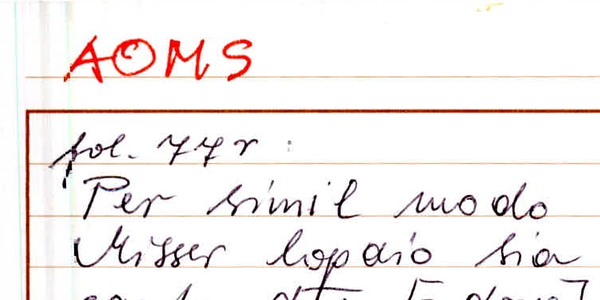 AOMS
fol. 77r:
Per simil modo
Misser lopaio sia